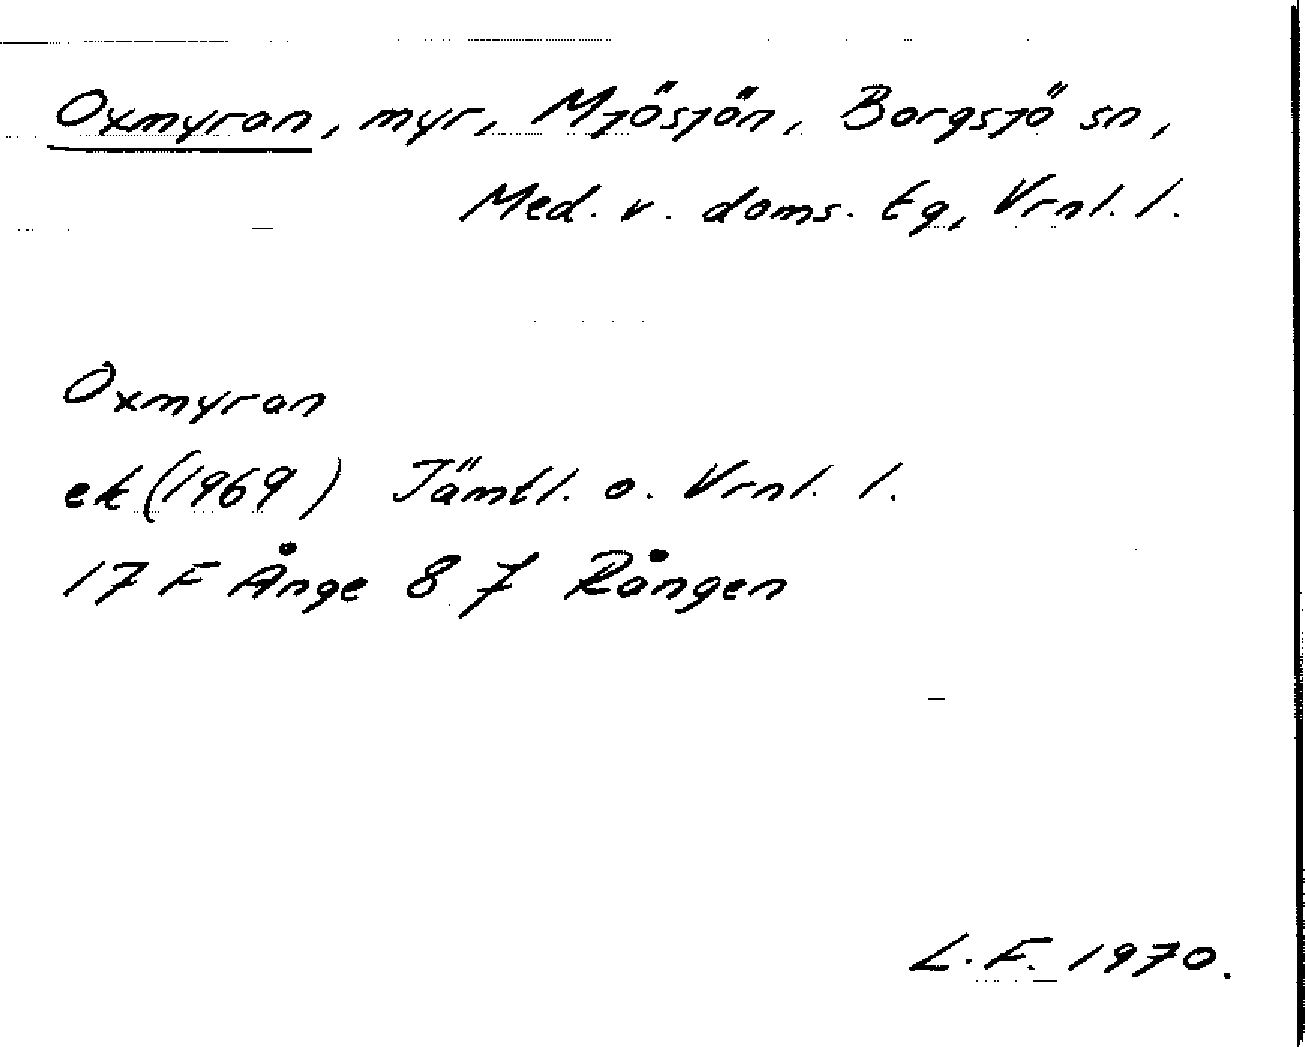 Oxmyran, myr, Mjösjön, Borgsjö sn,
Med. v. doms. tg, Vrnl. l.
Oxmyran
ek (1969) Jämtl. o. Vrnl. l.
17 F Ånge 8 j Rången
L.F. 1970.